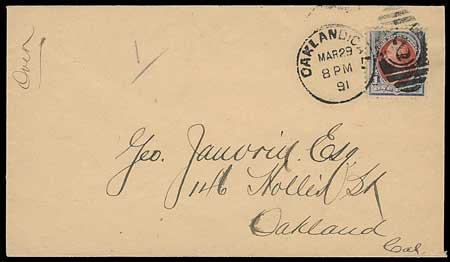 Over
OAKLAND, CAL.
MAR 29
8 PM
91
2
Geo. Janvrin Esq.
1146 Hollis St
Oakland
Cal.